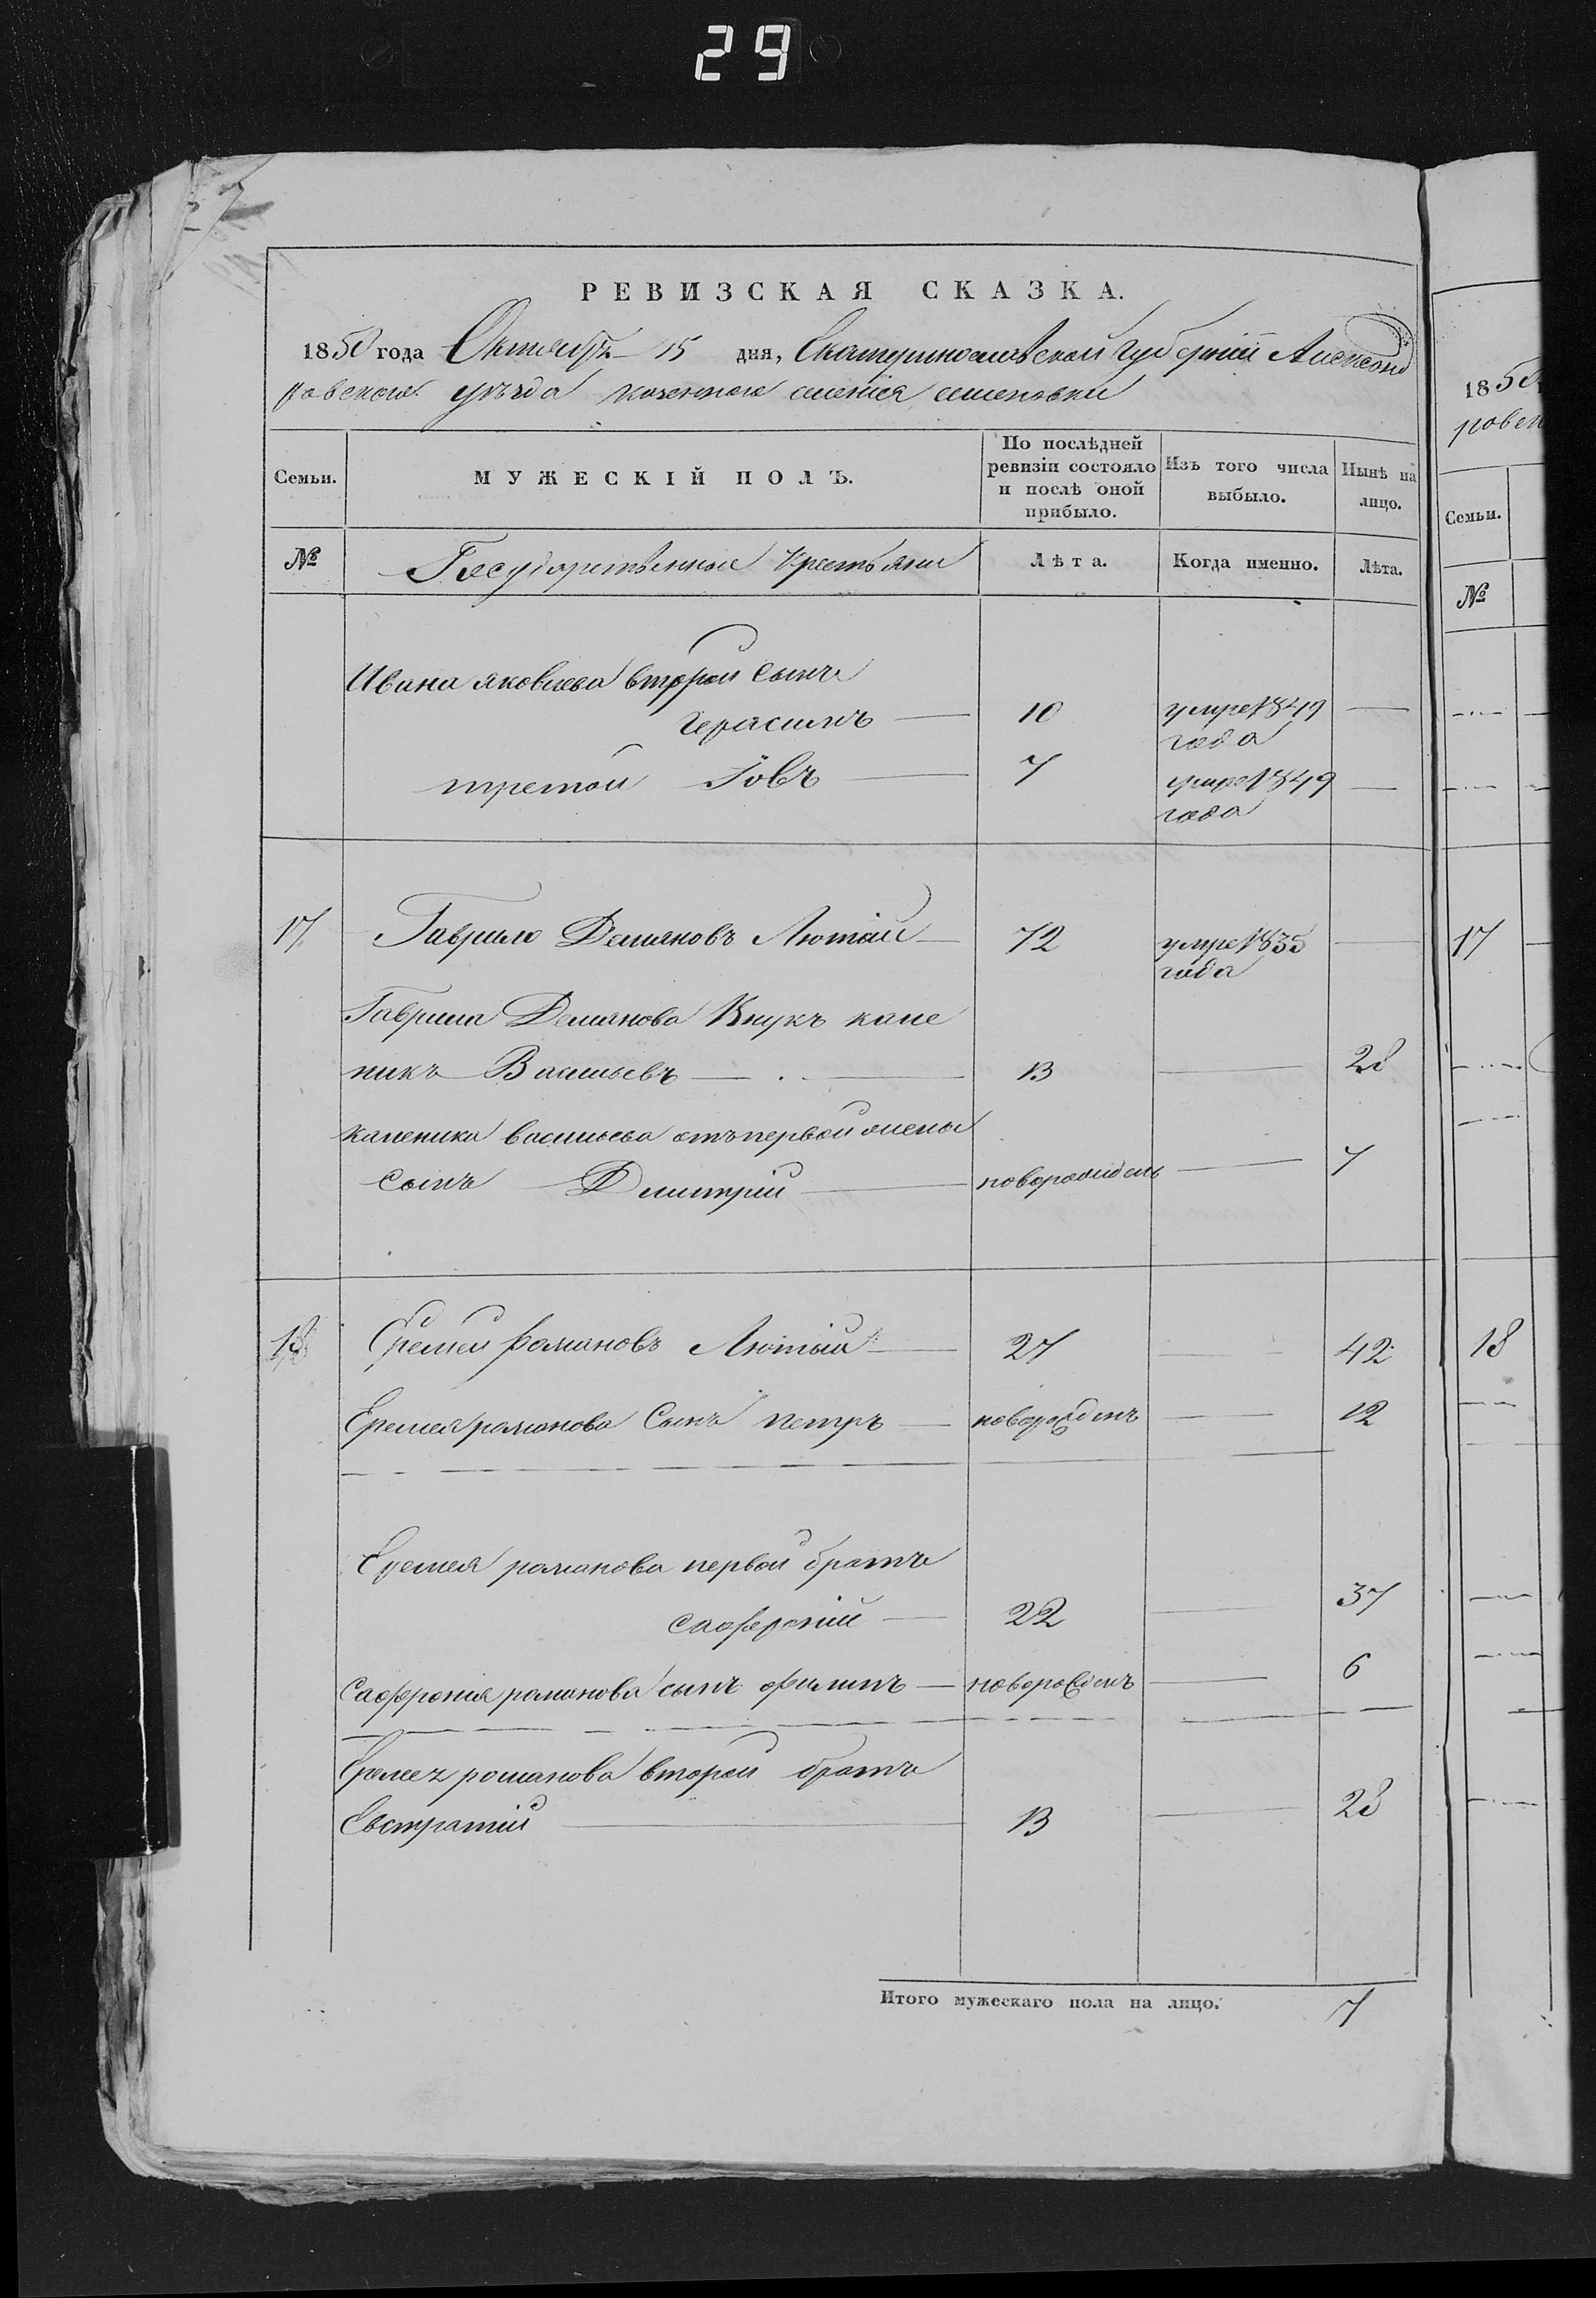 29
РЕВИЗСКАЯ СКАЗКА.
1850 года Октября 15 дня, Екатеринославской губерніи Александ
ровского уѣзда казенного селенія семеновки
Семьи.
МУЖЕСКІЙ ПОЛЪ.
По послѣдней ревизіи состояло и послѣ оной прибыло.
Изъ того числа выбыло.
Нынѣ на лицо.
№ Государственные Крестьяне Лѣта. Когда именно. Лѣта.
Ивана яковлева второй сынъ
Герасимъ — 10 умре 1849 —
года
третой Іовъ — 7 умре 1849 —
года
17 Гаврило Демяновъ Лютый — 72 умре 1835 —
года
Гаврила Демянова Внукъ кале
никъ Васильевъ — 13 — 28
каленика васильева отъ первой жены
сынъ Дмитрій — новорожденъ — 7
18 Еремей романовъ Лютый — 27 — 42
Еремея романова Сынъ петръ — новорожденъ — 12
Еремея романова первой братъ
сафроній — 22 — 37
Сафронія романова сынъ филипъ — новорожденъ — 6
Еремея романова второй братъ
Евстратій — 13 — 28
Итого мужескаго пола на лицо. 7
1850
ровск
Семьи.
№
17
18